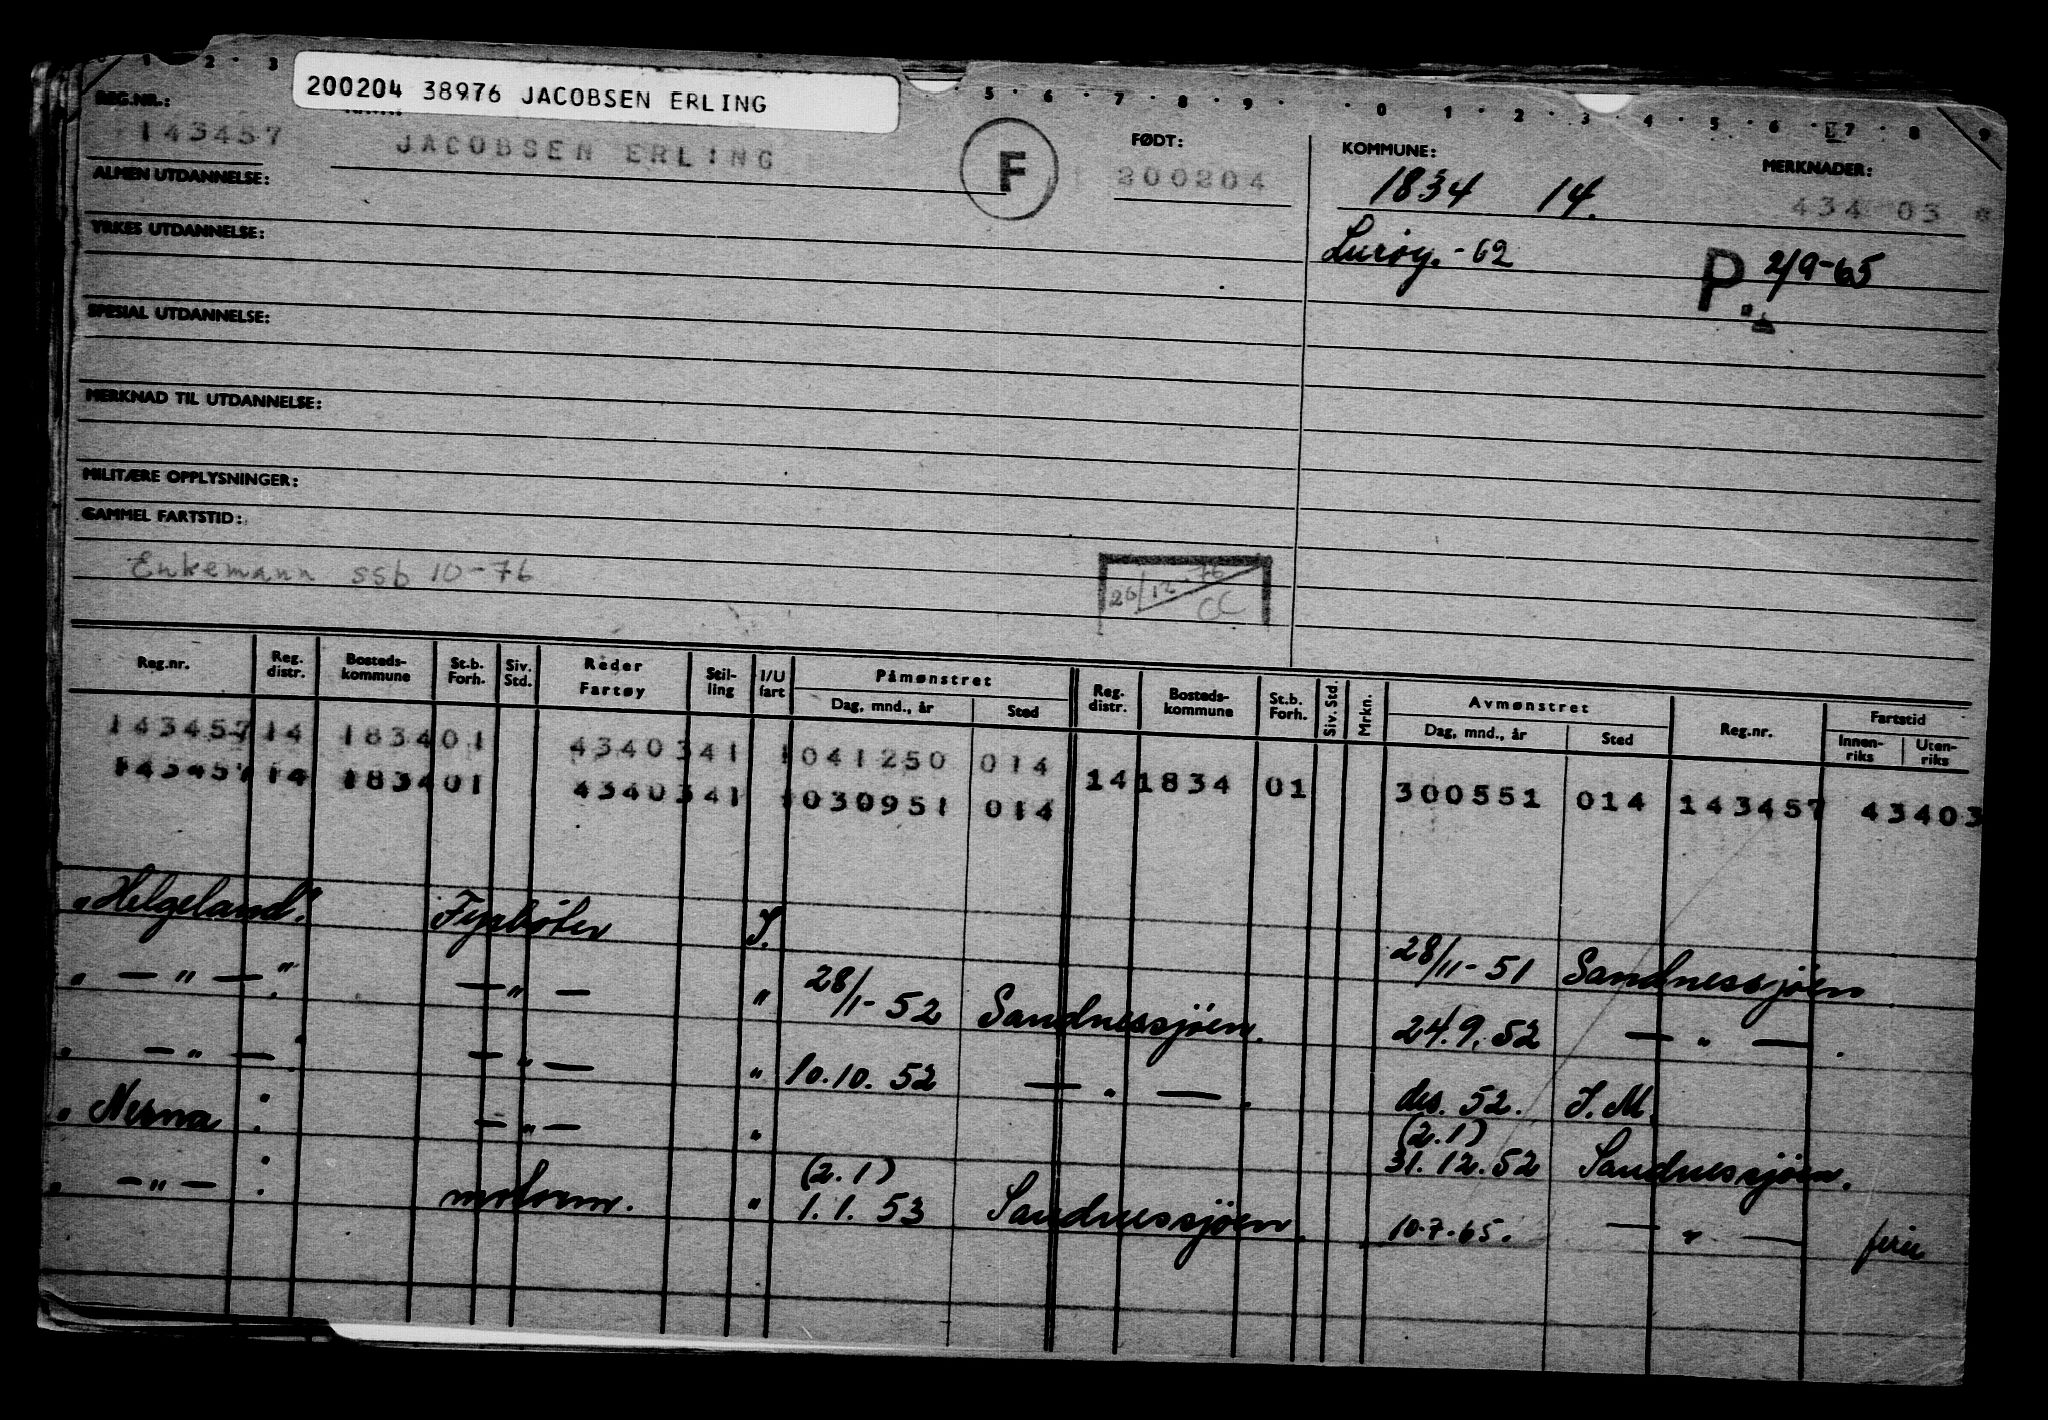 1 · 2 · 3
5 · 6 · 7 · 8 · 9 · · 0 · 1 · 2 · 3 · 4 · 5 · 6 · 7 · 8 · 9
200204 38976 JACOBSEN ERLING
REG.NR.: FØDT: KOMMUNE: MERKNADER:
143457 JACOBSEN ERLING F 200204 1834 14. 434 03
ALMEN UTDANNELSE:
YRKES UTDANNELSE: Lurøy. -62 P. 2/9-65
SPESIAL UTDANNELSE:
MERKNAD TIL UTDANNELSE:
MILITÆRE OPPLYSNINGER:
GAMMEL FARTSTID:
Enkemann ssb 10-76 26/12-76 CC
Reg.nr. Reg. distr. Bosteds-kommune St.b. Forh. Siv. Std. Reder Fartøy Stil-ling I/U fart Påmønstret Dag, mnd., år Sted Reg. distr. Bosteds-kommune St.b. Forh. Siv. Std. Mrkn. Avmønstret Dag, mnd., år Sted Reg.nr. Fartstid Innen-riks Uten-riks
143457 14 183401 4340341 1041250 014 14 1834 01 300551 014 143457 43403
143457 14 183401 4340341 1030951 014
"Helgeland". Fyrbøter I. 28/11-51 Sandnessjøen.
" — " — ". — " — " 28/1-52 Sandnessjøen. 24.9.52 — " — .
" — " — ". — " — " 10.10.52 — " — . des. 52. S.M.
"Nesna". — " — " (2.1) 31.12.52 Sandnessjøen.
" — " — ". motorm. " (2.1) 1.1.53 Sandnessjøen. 10.7.65. — " — ferie